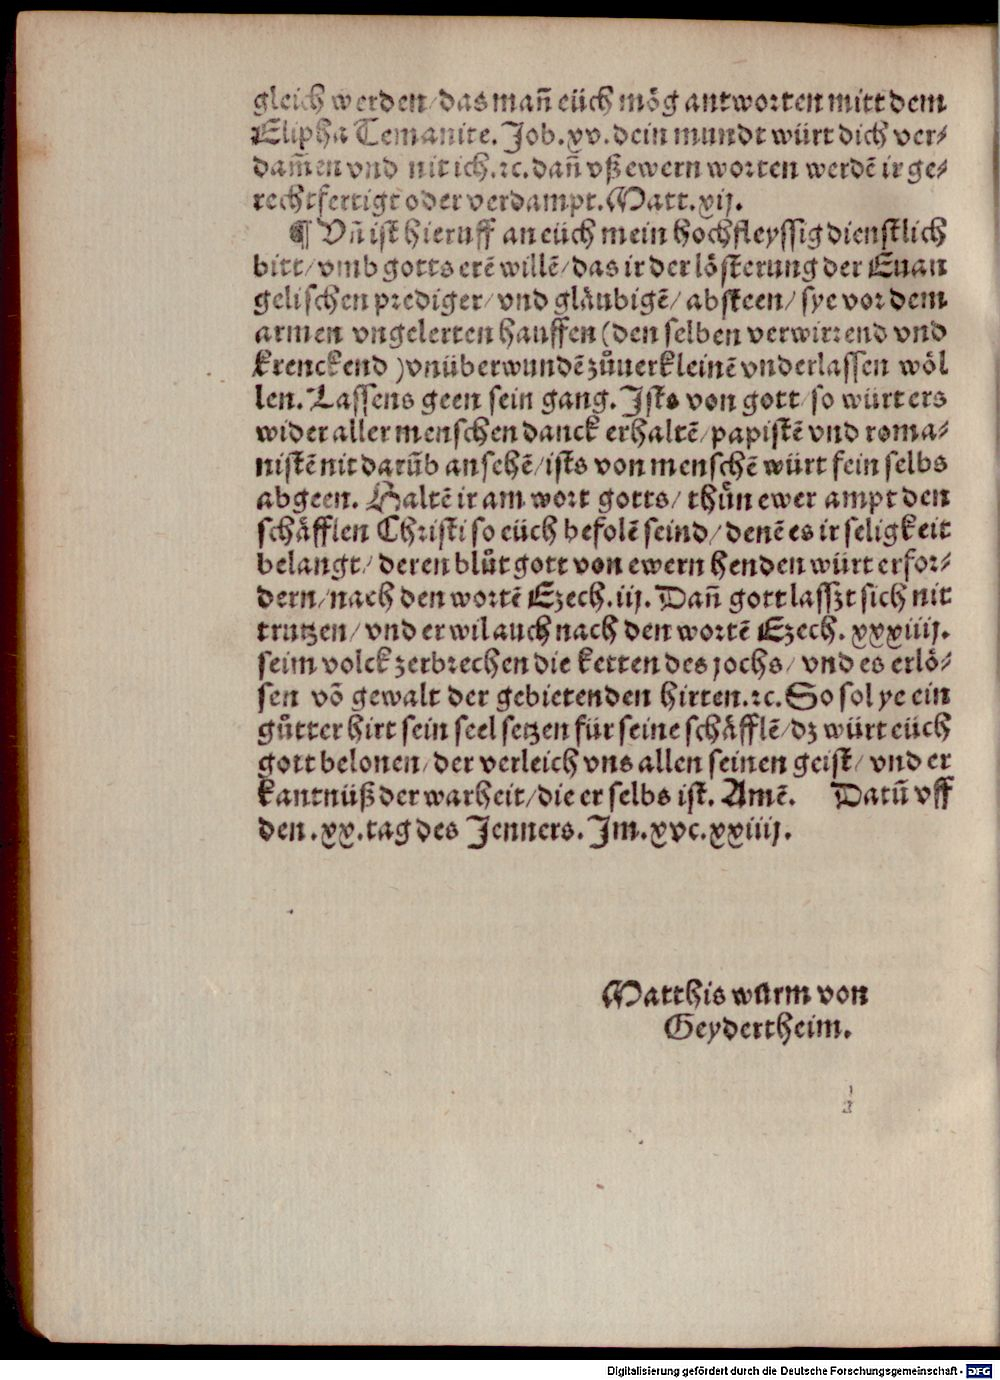 gleich werden/das mañ eüch mög antworten mitt dem
Elipha Temanite. Job.xv.dein mundt würt dich ver⸗
dam̃en vnd nit ich.ꝛc.dañ vß ewern worten werdẽ ir ge⸗
rechtfertigt oder verdampt.Matt.xij.
¶ Vñ ist hieruff an eüch mein hochfleyssig dienstlich
bitt/vmb gotts erẽ willẽ/das ir der lösterung der Euan
gelischen prediger/vnd gläubigẽ/absteen/sye vor dem
armen vngelerten hauffen (den selben verwirrend vnd
krenckend )vnüberwundẽ zůuerkleinẽ vnderlassen wöl
len. Lassens geen sein gang. Jsts von gott/so würt ers
wider aller menschen danck erhaltẽ/papistẽ vnd roma⸗
nistẽ nit darũb ansehẽ/ists von menschẽ würt fein selbs
abgeen. Haltẽ ir am wort gotts/thůn ewer ampt den
schäfflen Christi so eüch befolẽ seind/denẽ es ir seligkeit
belangt/deren blůt gott von ewern henden würt erfor⸗
dern/nach den wortẽ Ezech.iij. Dañ gott lasszt sich nit
trutzen/vnd er wil auch nach den wortẽ Ezech.xxxiiij.
seim volck zerbrechen die ketten des jochs/vnd es erlö⸗
sen võ gewalt der gebietenden hirten.ꝛc.So sol ye ein
gůtter hirt sein seel setzen für seine schäfflẽ/dz würt eüch
gott belonen/der verleich vns allen seinen geist/vnd er
kantnüß der warheit/die er selbs ist. Amẽ. Datũ vff
den.xx.tag des Jenners. Jm.xvc.xxiiij.
Matthis wurm von
Geydertheim.
Digitalisierung gefördert durch die Deutsche Forschungsgemeinschaft - DFG